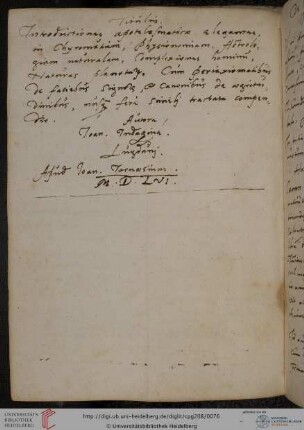 Titulus.
Introductiones apotelesmaticæ elegantes,
in Chyromantiam, Physionomiam, Astrolo-
giam naturalem, Complexiones hominum,
Naturas Planetarum. Cum periaxiomatibus
De faciebus Signorum, et Canonibus de ægritu-
dinibus, feré similia tractata compen
dio.
Autore,
Ioan: Indagine
Lugduni,
Apud Ioan: Tornæsium.
M. D. LVI.
UNIVERSITÄTS-
BIBLIOTHEK
HEIDELBERG
http://digi.ub.uni-heidelberg.de/diglit/cpg268/0076
© Universitätsbibliothek Heidelberg